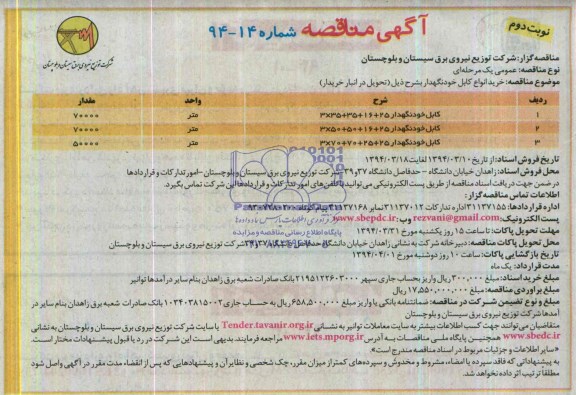 نوبت دوم
آگهی مناقصه شماره ۱۴-۹۴
شرکت توزیع نیروی برق سیستان و بلوچستان
مناقصه گزار: شرکت توزیع نیروی برق سیستان و بلوچستان
نوع مناقصه: عمومی یک مرحله‌ای
موضوع مناقصه: خرید انواع کابل خودنگهدار بشرح ذیل (تحویل در انبار خریدار)
ردیف شرح واحد مقدار
۱ کابل خودنگهدار ۲۵+۱۶+۳۵+۳×۳۵ متر ۷۰۰۰۰
۲ کابل خودنگهدار ۲۵+۱۶+۵۰+۳×۵۰ متر ۷۰۰۰۰
۳ کابل خودنگهدار ۲۵+۲۵+۷۰+۳×۷۰ متر ۵۰۰۰۰
تاریخ فروش اسناد: از تاریخ ۱۳۹۴/۰۳/۱۰ لغایت ۱۳۹۴/۰۳/۱۸
محل فروش اسناد: زاهدان خیابان دانشگاه - حدفاصل دانشگاه ۳۷و۳۹ شرکت توزیع نیروی برق سیستان و بلوچستان - امور تدارکات و قراردادها
در ضمن جهت دریافت اسناد مناقصه از طریق پست الکترونیکی می‌توانید با تلفن‌های امور تدارکات و قراردادها این شرکت تماس بگیرد.
اطلاعات تماس مناقصه گزار:
اداره قراردادها: ۳۱۱۳۷۱۵۵ اداره تدارکات ۳۱۱۳۷۰۱۲ نمابر ۳۱۱۳۷۱۶۸
پست الکترونیک: rezvani@gmail.com وب: www.sbepdc.ir
مهلت تحویل پاکات: تا ساعت ۱۵ روز یکشنبه مورخ ۱۳۹۴/۰۳/۳۱
محل تحویل پاکات مناقصه: دبیرخانه شرکت به نشانی زاهدان خیابان دانشگاه حدفاصل دانشگاه ۳۷و۳۹ شرکت توزیع نیروی برق سیستان و بلوچستان
تاریخ بازگشایی پاکات: ساعت ۱۰ روز دوشنبه مورخ ۱۳۹۴/۰۴/۰۱
مدت قرارداد: یک ماه
مبلغ خرید اسناد: مبلغ ۳۰۰,۰۰۰ ریال واریز بحساب جاری سپهر ۲۱۹۵۱۲۲۶۰۳۰۰۰ بانک صادرات شعبه برق زاهدان بنام سایر درآمدها توانیر
مبلغ برآوردی مناقصه: مبلغ ۱۷,۵۵۰,۰۰۰,۰۰۰ ریال
مبلغ و نوع تضمین شرکت در مناقصه: ضمانتنامه بانکی یا واریز مبلغ ۶۵۸,۵۰۰,۰۰۰ ریال به حساب جاری ۱۰۳۴۰۳۸۱۵۰۰۲ بانک صادرات شعبه برق زاهدان بنام سایر در
آمدها شرکت توزیع نیروی برق سیستان و بلوچستان
متقاضیان می‌توانند جهت کسب اطلاعات بیشتر به سایت معاملات توانیر به نشانی Tender.tavanir.org.ir یا سایت شرکت توزیع نیروی برق سیستان و بلوچستان به نشانی
www.sbepdc.ir همچنین پایگاه ملی مناقصات به آدرس www.iets.mporg.ir مراجعه فرمایند. بدیهی است این شرکت در رد یا قبول پیشنهادات مختار است.
«سایر اطلاعات و جزئیات مربوط در اسناد مناقصه مندرج است».
به پیشنهاداتی که فاقد سپرده یا امضاء، مشروط و مخدوش و سپرده‌های کمتر از میزان مقرر، چک شخصی و نظایر آن و پیشنهادهایی که پس از انقضاء مدت مقرر در آگهی واصل شود
مطلقاً ترتیب اثر داده نخواهد شد.
پایگاه اطلاع رسانی مناقصه و مزایده